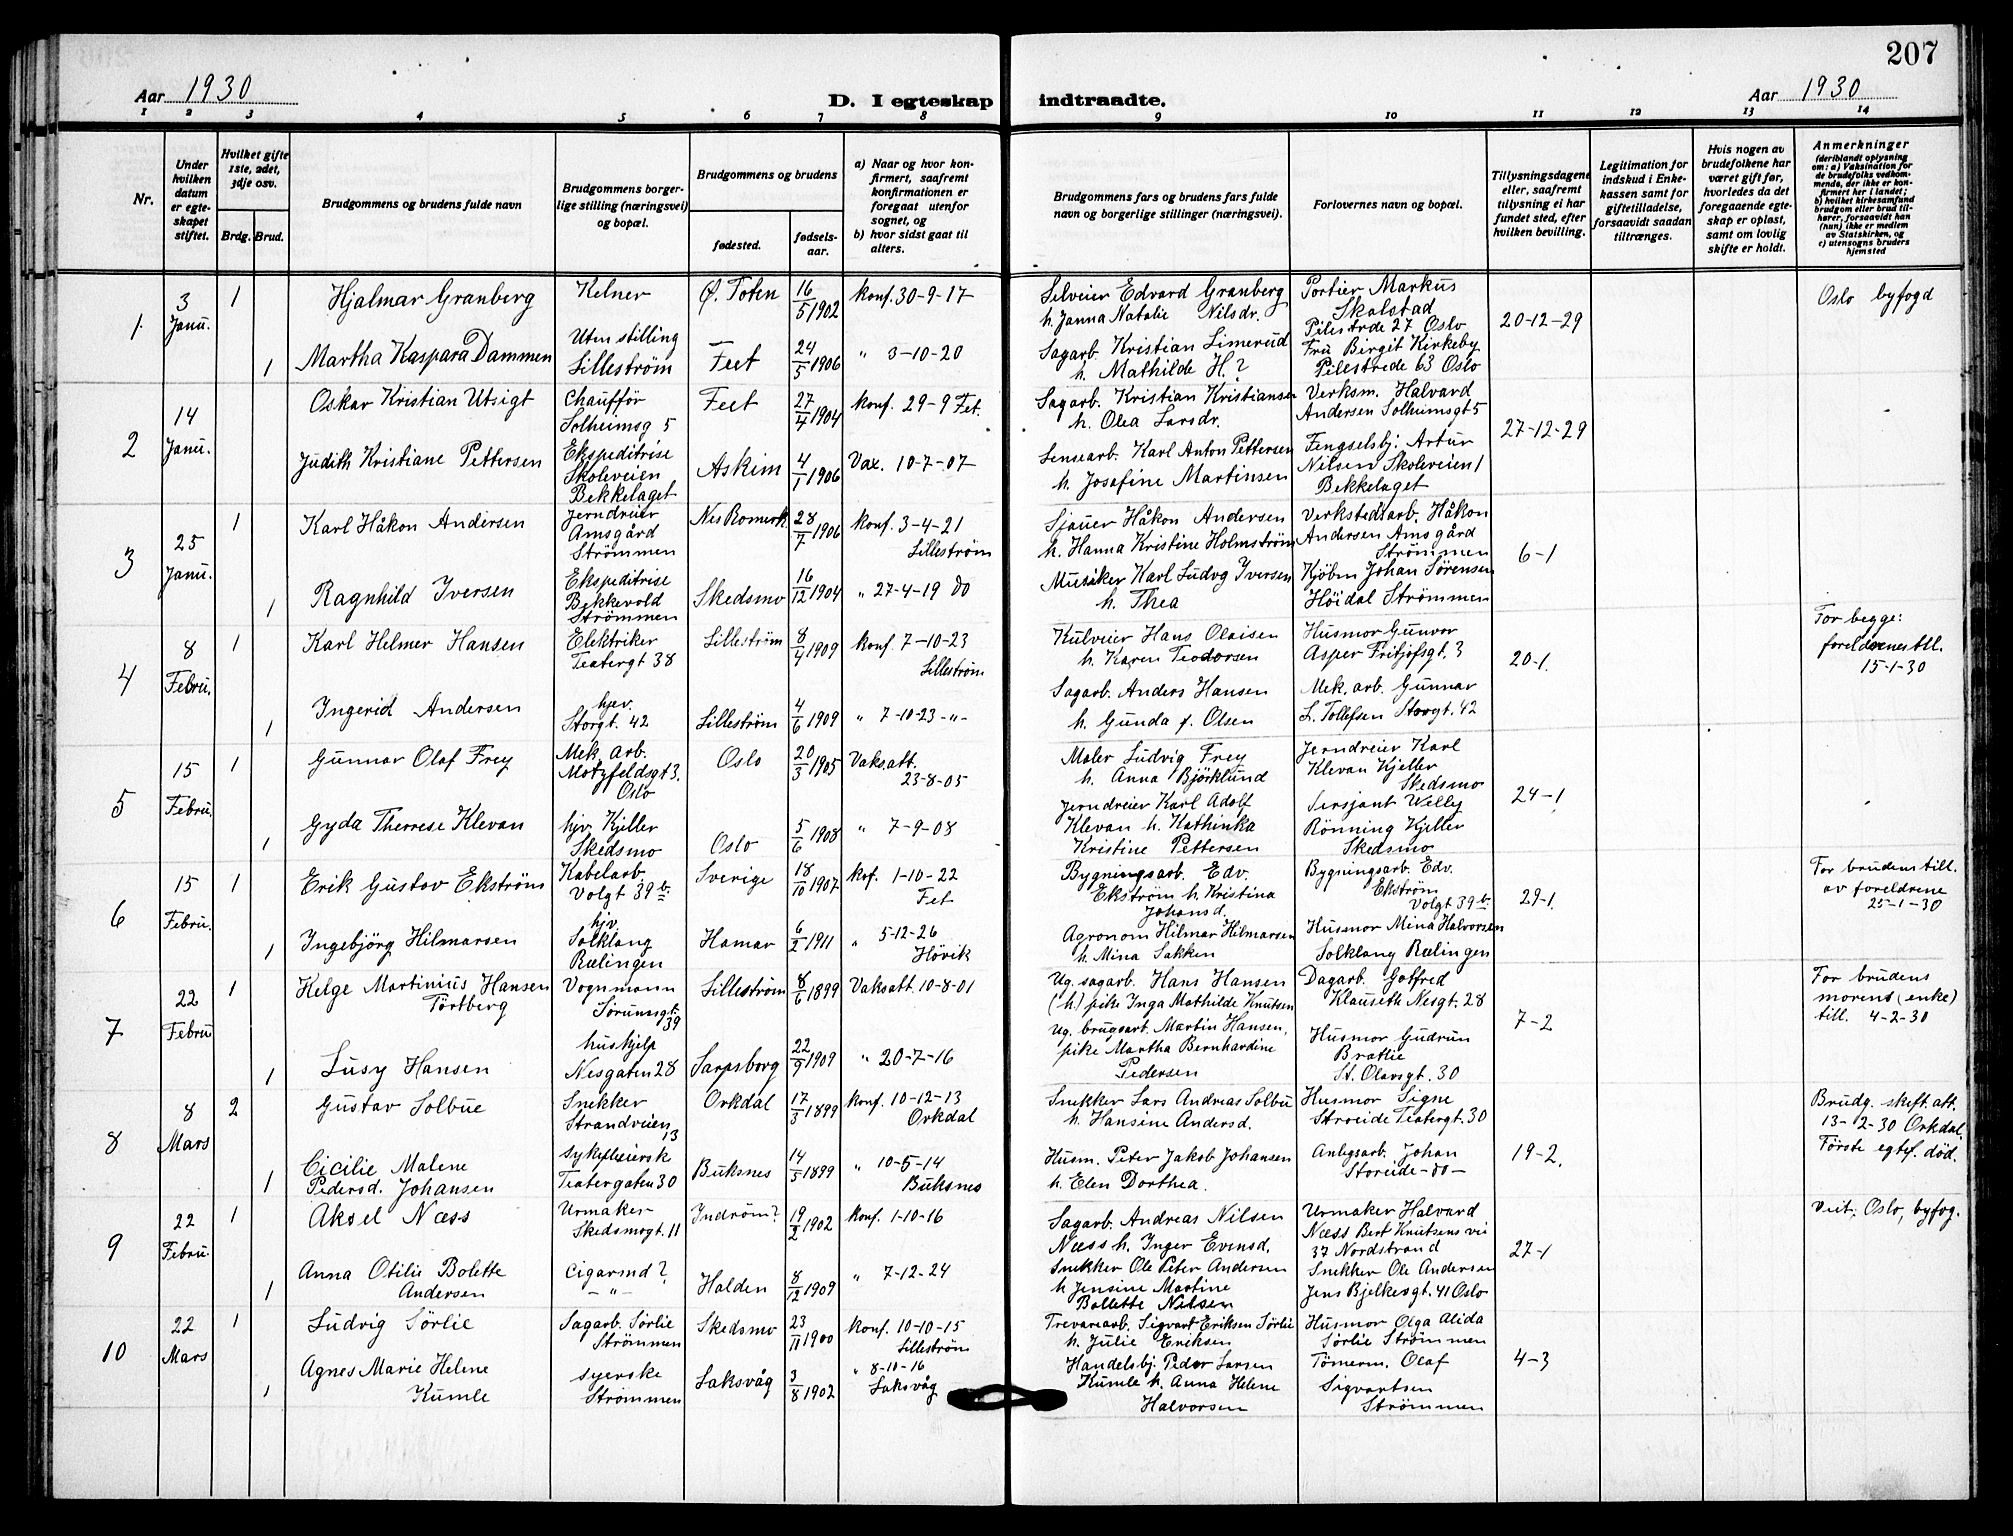 207
Aar 1930
D. I egteskap indtraadte.
Aar 1930
1 2 3 4 5 6 7 8 9 10 11 12 13 14
Nr.
Under hvilken datum er egteskapet stiftet.
Hvilket gifte 1ste, 2det, 3dje osv.
Brdg. Brud.
Brudgommens og brudens fulde navn
Brudgommens borgerlige stilling (næringsvei) og bopæl.
Brudgommens og brudens
fødested.
fødselsaar.
a) Naar og hvor konfirmert, saafremt konfirmationen er foregaat utenfor sognet, og
b) hvor sidst gaat til alters.
Brudgommens fars og brudens fars fulde navn og borgerlige stillinger (næringsvei).
Forlovernes navn og bopæl.
Tillysningsdagene eller, saafremt tillysning ei har fundet sted, efter hvilken bevilling.
Legitimation for indskud i Enkekassen samt for giftetilladelse, forsaavidt saadan tiltrænges.
Hvis nogen av brudefolkene har været gift før, hvorledes da det foregaaende egteskap er opløst, samt om lovlig skifte er holdt.
Anmerkninger
(deriblandt oplysning om: a) Vaksination for de brudefolks vedkommende, der ikke er konfirmert her i landet; b) hvilket kirkesamfund brudgom eller brud tilhører, forsaavidt han (hun) ikke er medlem av Statskirken, og c) utensogns bruders hjemsted
1. 3 Janu. 1
Hjalmar Granberg
Kelner
Ø. Toten
16/5 1902
konf. 30-9-17
Selveier Edvard Granberg
h. Janna Natalie Nilsdr.
Portier Markus
Skolstad
Pilestrde 27 Oslo
20-12-29
Oslo byfogd
1
Martha Kaspara Dammen
Uten stilling
Lilleström
Feet
24/5 1906
" 3-10-20
Sagarb. Kristian Limerud
h. Mathilde H.?
Fru Birgit Kirkeby
Pilestrede 63 Oslo
2 14 Janu.
Oskar Kristian Utsigt
Chaufför
Solheimsg 5
Feet
27/4 1904
konf. 29-9 Fet.
Sagarb. Kristian Kristiansen
h. Olea Larsdr.
Verksm. Halvard
Andersen Solheimsgt 5
27-12-29
Judith Kristiane Pettersen
Ekspeditrise
Skoleveien
Bekkelaget
Askim
4/1 1906
Vax. 10-7-07
Lensearb. Karl Anton Pettersen
h. Josefine Martinsen
Fengselsbj. Artur
Nilsen Skoleveien 1
Bekkelaget
3 25 Janu. 1
Karl Håkon Andersen
Jerndreier
Amsgård
Strömmen
Nes Romerk.
28/7 1906
konf. 3-4-21
Lilleström
Sjauer Håkon Andersen
h. Hanna Kristine Holmström
Verkstedsarb. Håkon
Andersen Amsgård
Strömmen
6-1
1
Ragnhild Iversen
Ekspeditrise
Bekkevold
Strömmen
Skedsmo
16/12 1904
" 27-4-19 do
Musiker Karl Ludvg Iversen
h. Thea
Kjöbm Johan Sörensen
Höidal Strömmen
4 8 Febru. 1
Karl Helmer Hansen
Elektriker
Teatergt 38
Lilleström
8/4 1909
konf. 7-10-23
Lilleström
Kulveier Hans Olaisen
h. Karen Teodorsen
Husmor Gunvor
Asper Fritjofsgt. 3
20-1.
For begge:
foreldrenes till.
15-1-30
1
Ingerid Andersen
hjev.
Storgt. 42
Lilleström
4/6 1909
" 7-10-23 -"-
Sagarb. Anders Hansen
h. Gunda f. Olsen
Mek. arb. Gunnar
L. Tollefsen Storgt. 42
5 15 Febru. 1
Gunnar Olaf Frey
Mek. arb.
Motzfeldsgt 3.
Oslo
Oslo
20/3 1905
Vaks.att.
23-8-05
Maler Ludvig Frey
h. Anna Björklund
Jerndreier Karl
Klevan Kjeller
Skedsmo
24-1
1
Gyda Therese Klevan
hjv. Kjeller
Skedsmo
Oslo
5/6 1908
" 7-9-08
Jerndreier Karl Adolf
Klevan h. Kathinka
Kristine Pettersen
Sersjant Welly
Rönning Kjeller
Skedsmo
6 15 Febru. 1
Erik Gustav Ekström
Kabelarb.
Volgt 39 b
Sverige
18/10 1907
kof. 1-10-22
Fet
Bygningsarb. Edv.
Ekström h. Kristina
Johansd.
Bygningsarb. Edv.
Ekström
Volgt 39 b.
29-1.
For brudens till.
av foreldrene
25-1-30
1
Ingebjörg Hilmarsen
hjv.
Solklang
Rælingen
Hamar
6/2 1911
" 5-12-26
Hövik
Agronom Hilmar Hilmarsen
h. Mina Sakken
Husmor Mina Halvorsen
Solklang Rælingen
7 22 Febru 1
Helge Martinius Hansen
Törtberg
Vognmann
Sörumsgt.
39
Lilleström
8/6 1899
Vaksatt 10-8-01
Ug. sagarb. Hans Hansen
(h.) pike Inga Mathilde Knutsen
Dagarb. Gotfred
Klauseth Nesgt. 28
7-2
For brudens
morens (enke)
till. 4-2-30
1
Lusy Hansen
huskjelp
Nesgaten 28
Sarpsborg
22/9 1909
" 20-7-16
Ug. brugsarb. Martin Hansen,
pike Martha Bernhardine
Pedersen
Husmor Gudrun
Bratlie
St. Olavsgt. 30
8 8 Mars 2
Gustav Solbue
Snekker
Strandveien
13
Orkdal
17/3 1899
konf. 10-12-13
Orkdal
Snekker Lars Andreas Solbu
h. Hansine Andersd.
Husmor Signe
Storeide Teatergt. 30
19-2.
Brudg. skift. att.
13-2-30 Orkdal.
Förste egtef. död.
1
Cicilie Malene
Pedersd. Johansen
sykepleierske
Teatergaten 30
Buksnes
14/5 1899
" 10-5-14
Buksnes
Husm. Peter Jakob Johansen
h. Elen Dorthea.
Anlegsarb. Johan
Storeide -do-
9 22 Febru. 1
Aksel Næss
Urmaker
Skedsmogt. 11
Indröm?
19/2 1902
konf. 1-10-16
Sagarb. Andreas Nilsen
Næss h. Inger Evensd.
Urmaker Halvard
Næss Bert Knutsens vei
37 Nordstrand
27-1
Viet; Oslo, byfog.
1
Anna Otilie Bolette
Andersen
Cigarmd?
-"-
Halden
8/12 1909
" 7-12-24
Snekker Ole Peter Andersen
h Jensine Martine
Bollette Nilsen
Snekker Ole Andersen
Jens Bjelkesgt. 41 Oslo
10 22 Mars 1
Ludvig Sörlie
Sagarb. Sörlie
Strömmen
Skedsmo
23/11 1900
konf. 10-10-15
Lilleström
Trevarearb. Sigvart Eriksen Sörlie
h. Julie Eriksen
Husmor Olga Alida
Sörlie Strömmen
4-3
1
Agnes Marie Helene
Kumle
syerske
Strömmen
Laksvåg
3/8 1902
" 8-10-16
Laksvåg
Handelsbj. Peder Larsen
Kumle h. Anna Helene
Halvorsen
Tömerm. Olaf
Sigvartsen
Strömmen